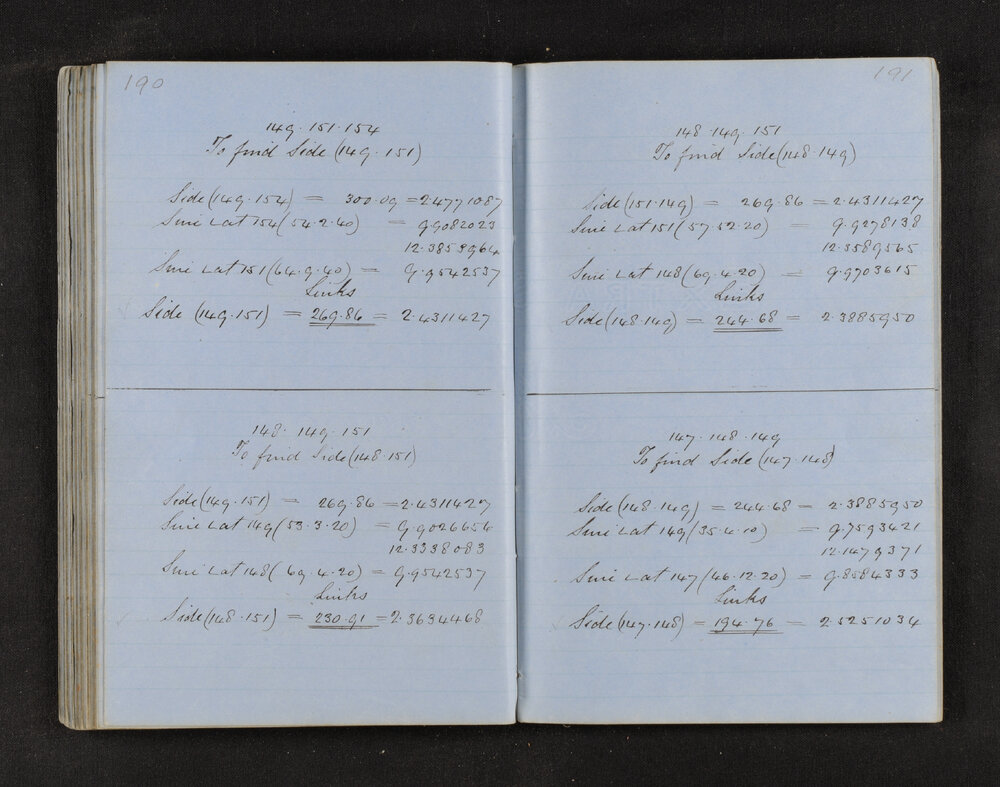 190
149·151·154
To find Side (149·151)
Side (149·154) = 300·09 = 2·4771087
Sine ∠ at 154 (54·2·40) = 9·9082023
12·3853964
Sine ∠ at 151 (64·9·40) = 9·9542537
Links
Side (149·151) = 269·86 = 2·4311427
148·149·151
To find Side (148·151)
Side (149·151) = 269·86 = 2·4311427
Sine ∠ at 149 (53·3·20) = 9·9026656
12·3338083
Sine ∠ at 148 (69·4·20) = 9·9542537
Links
Side (148·151) = 230·91 = 2·3634468
191
148·149·151
To find Side (148·149)
Side (151·149) = 269·86 = 2·4311427
Sine ∠ at 151 (57·52·20) = 9·9278138
12·3589565
Sine ∠ at 148 (69·4·20) = 9·9703615
Links
Side (148·149) = 244·68 = 2·3885950
147·148·149
To find Side (147·148)
Side (148·149) = 244·68 = 2·3885950
Sine ∠ at 149 (35·4·10) = 9·7593421
12·1479371
Sine ∠ at 147 (46·12·20) = 9·8584333
Links
Side (147·148) = 194·76 = 2·5251034